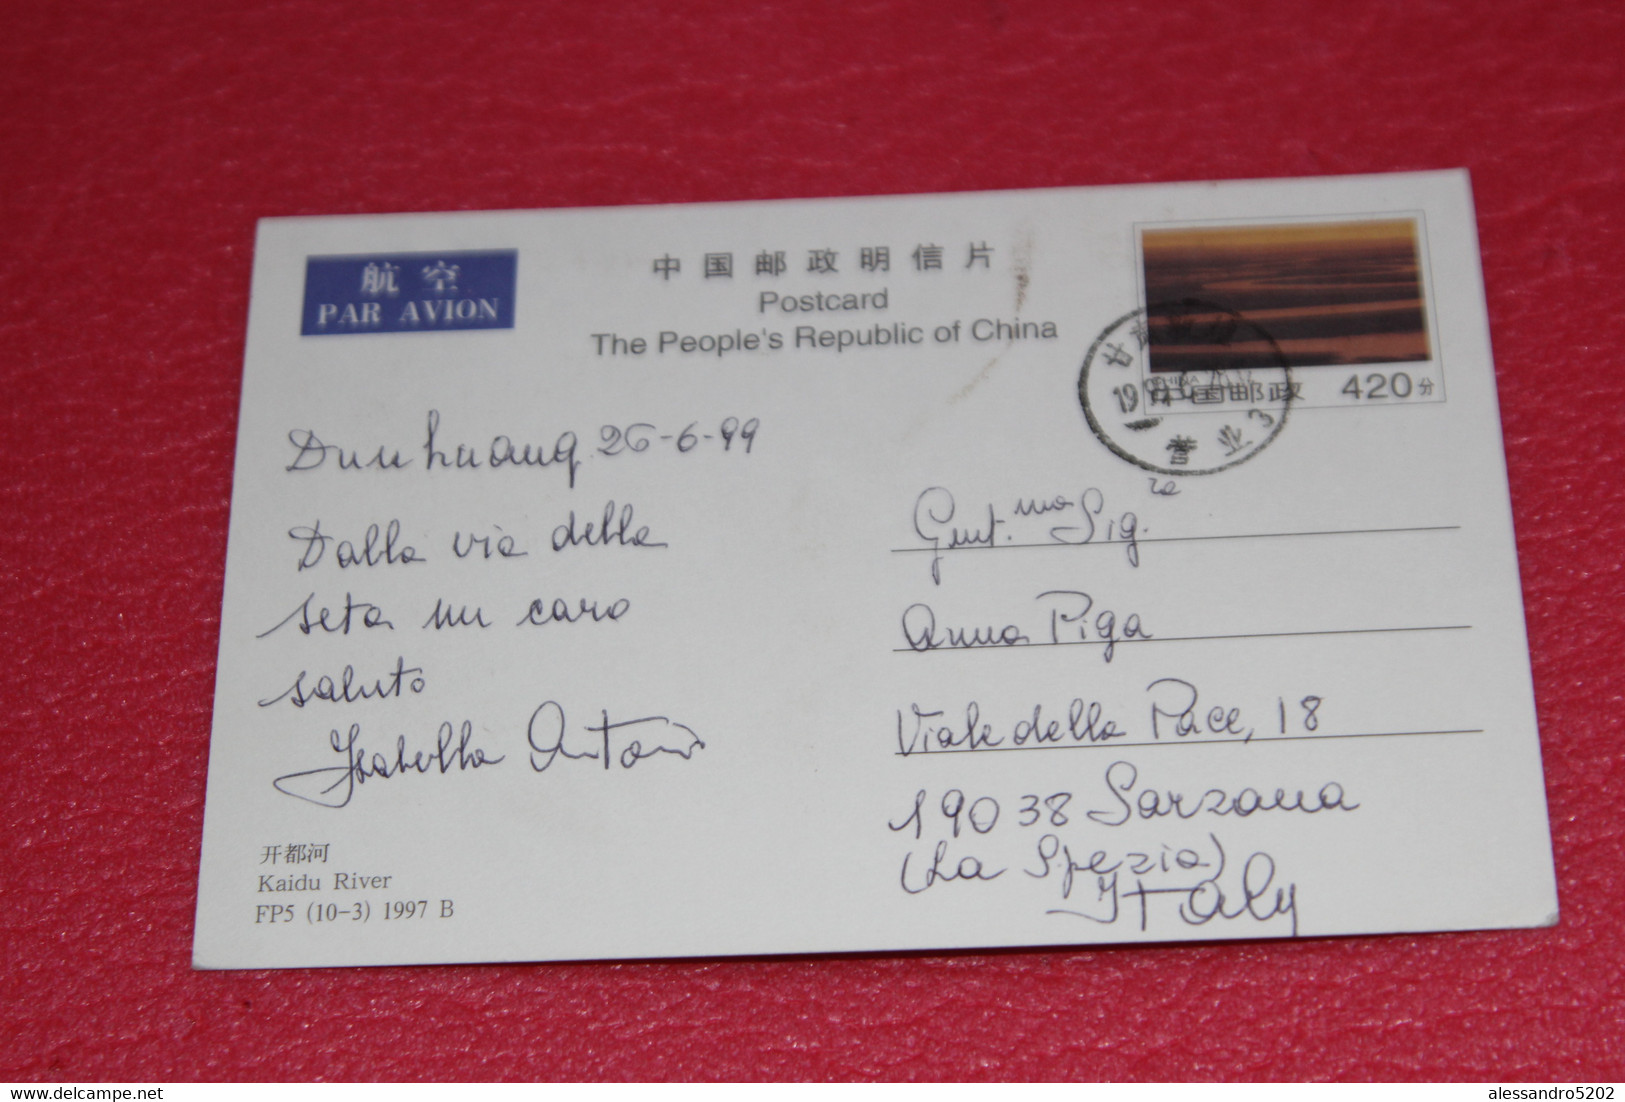 航空
PAR AVION
中国邮政明信片
Postcard
The People's Republic of China
CHINA
中国邮政 420分
甘肃
19
营业 3
Dunhuang 26-6-99
Dalla via della
seta un caro
saluto
Isabella Antonio
开都河
Kaidu River
FP5 (10-3) 1997 B
Gent.ma Sig.ra
Anna Piga
Viale della Pace, 18
19038 Sarzana
(La Spezia)
Italy
alessandro5202